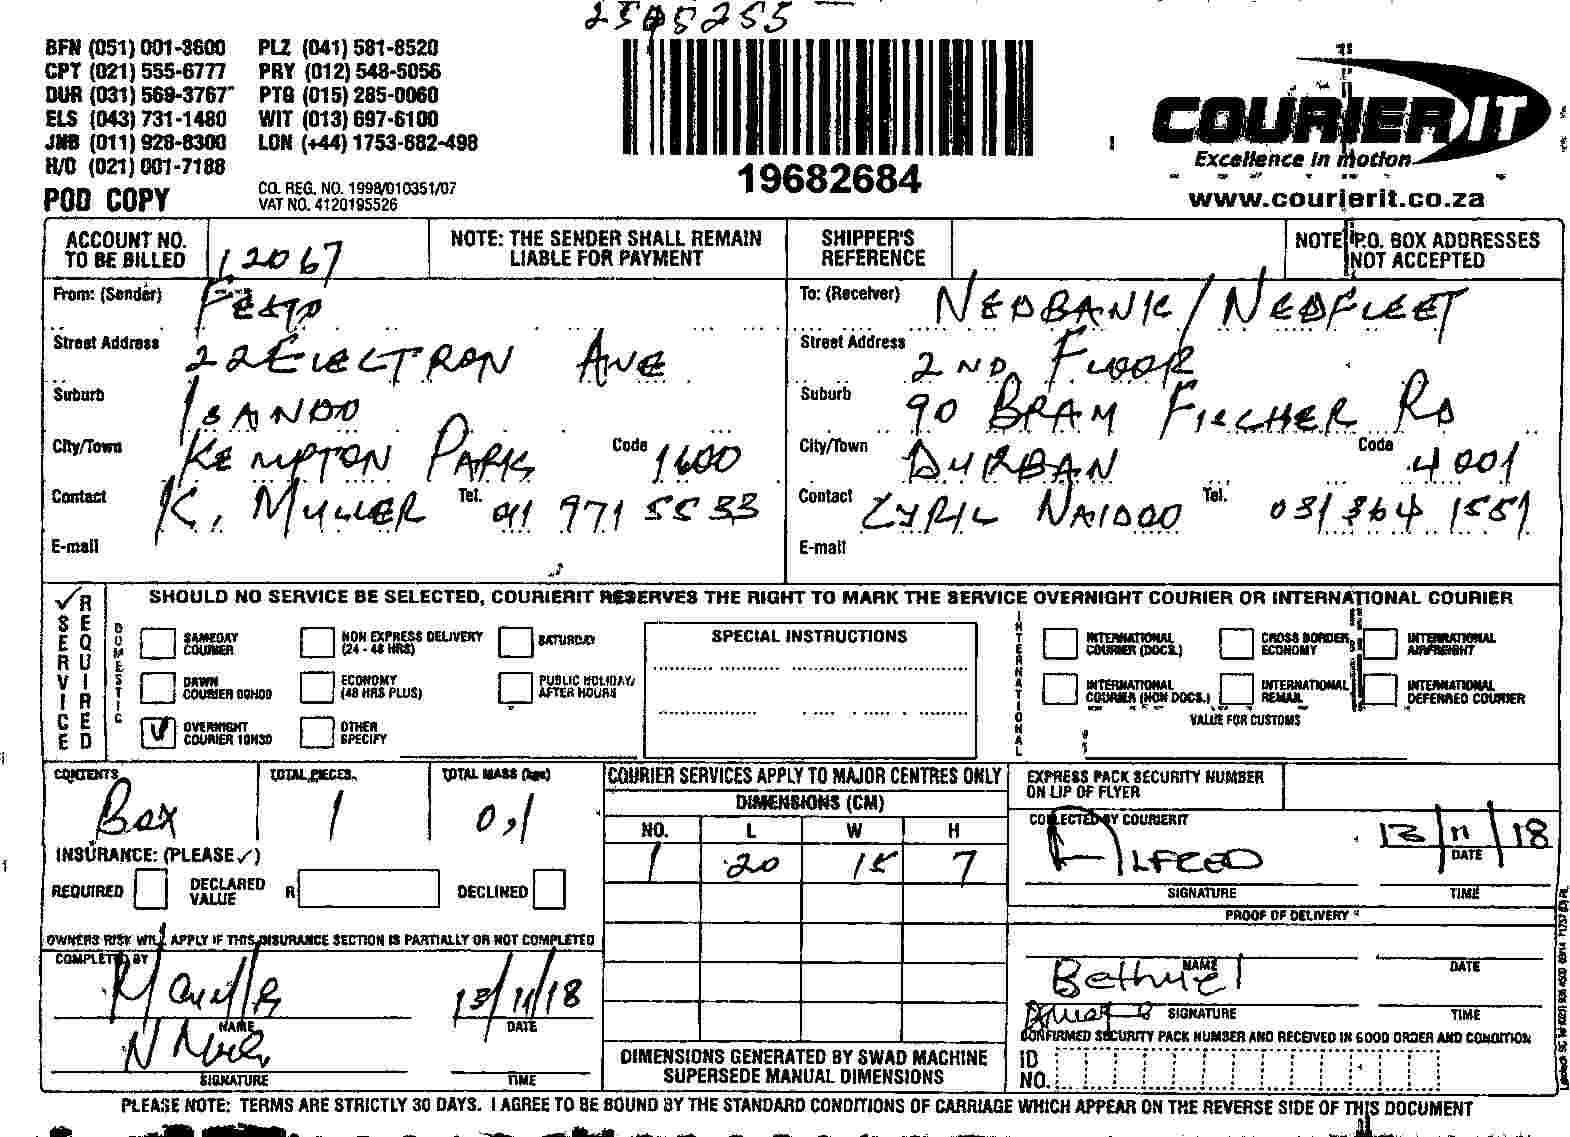 BFN (051) 001-3600 PLZ (041) 581-8520
CPT (021) 555-6777 PRY (012) 548-5056
DUR (031) 569-3767 PTG (015) 285-0060
ELS (043) 731-1480 WIT (013) 697-6100
JNB (011) 928-8300 LON (+44) 1753-682-498
H/O (021) 001-7188
POD COPY
CO. REG. NO. 1998/010351/07
VAT NO. 4120195526
19682684
COURIERIT
Excellence in motion
www.courierit.co.za
ACCOUNT NO. TO BE BILLED 12067
NOTE: THE SENDER SHALL REMAIN LIABLE FOR PAYMENT
SHIPPER'S REFERENCE
NOTE P.O. BOX ADDRESSES NOT ACCEPTED
From: (Sender)
Street Address 22 ELECTRON AVE
Suburb ISANDO
City/Town KEMPTON PARK Code 1600
Contact K. MULLER Tel. 011 971 5533
E-mail
To: (Receiver) NEDBANK / NEDFLEET
Street Address 2ND FLOOR
Suburb 90 BRAM FISCHER RD
City/Town DURBAN Code 4001
Contact ZYRIL NAIDOO Tel. 031 364 1551
E-mail
SERVICE REQUIRED
SHOULD NO SERVICE BE SELECTED, COURIERIT RESERVES THE RIGHT TO MARK THE SERVICE OVERNIGHT COURIER OR INTERNATIONAL COURIER
DOMESTIC
SAMEDAY COURIER
NON EXPRESS DELIVERY (24 - 48 HRS)
SATURDAY
DAWN COURIER 09H00
ECONOMY (48 HRS PLUS)
PUBLIC HOLIDAY/ AFTER HOURS
OVERNIGHT COURIER 10H30
OTHER SPECIFY
SPECIAL INSTRUCTIONS
INTERNATIONAL
INTERNATIONAL COURIER (DOCS.)
CROSS BORDER ECONOMY
INTERNATIONAL AIRFREIGHT
INTERNATIONAL COURIER (NON DOCS.)
INTERNATIONAL REMAIL
INTERNATIONAL DEFERRED COURIER
VALUE FOR CUSTOMS
CONTENTS Box
TOTAL PIECES. 1
TOTAL MASS (kgs) 0,1
INSURANCE: (PLEASE ✓)
REQUIRED
DECLARED VALUE R
DECLINED
OWNERS RISK WILL APPLY IF THIS INSURANCE SECTION IS PARTIALLY OR NOT COMPLETED
COMPLETED BY
13/11/18
NAME DATE
SIGNATURE TIME
COURIER SERVICES APPLY TO MAJOR CENTRES ONLY
DIMENSIONS (CM)
NO. L W H
1 20 15 7
DIMENSIONS GENERATED BY SWAD MACHINE SUPERSEDE MANUAL DIMENSIONS
EXPRESS PACK SECURITY NUMBER ON LIP OF FLYER
COLLECTED BY COURIERIT
ALFRED 13/11/18
DATE
SIGNATURE TIME
PROOF OF DELIVERY
NAME DATE
Bethuel
SIGNATURE TIME
CONFIRMED SECURITY PACK NUMBER AND RECEIVED IN GOOD ORDER AND CONDITION
ID NO.
PLEASE NOTE: TERMS ARE STRICTLY 30 DAYS. I AGREE TO BE BOUND BY THE STANDARD CONDITIONS OF CARRIAGE WHICH APPEAR ON THE REVERSE SIDE OF THIS DOCUMENT